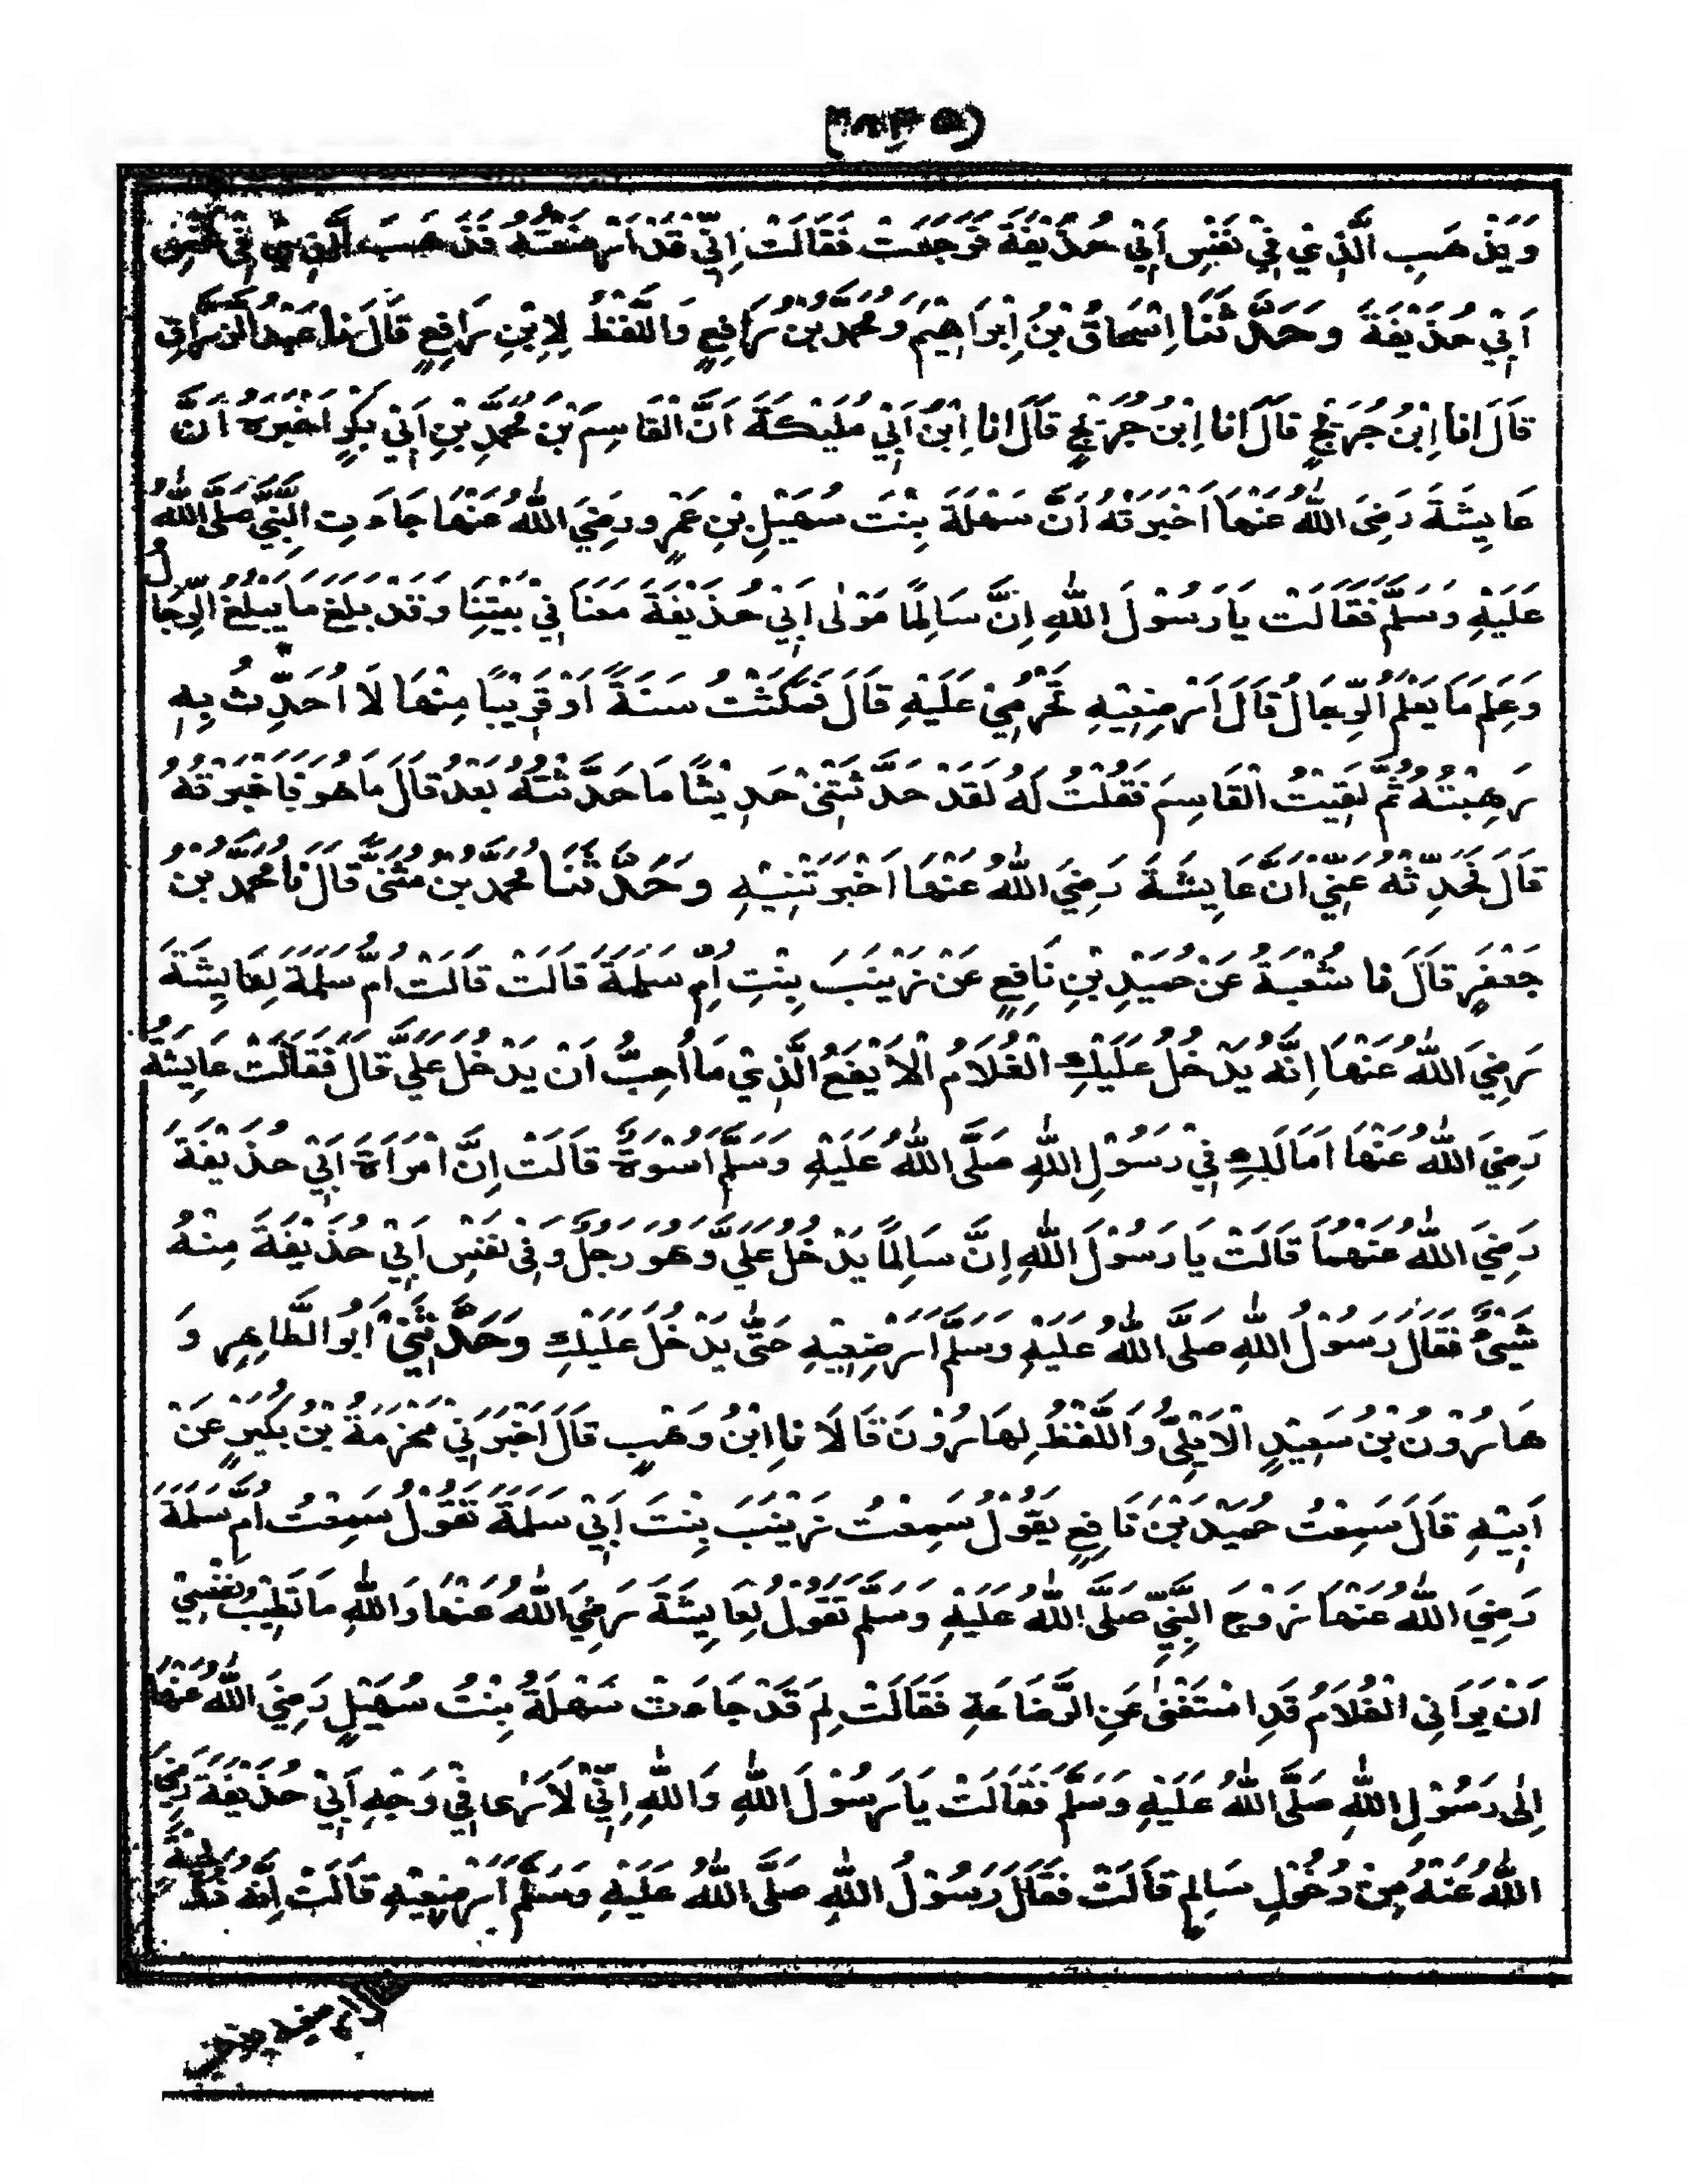 وَيَذْهَبِ الَّذِيْ فِيْ نَفْسِ اَبِيْ حُذَيْفَةَ فَرَجَعَتْ فَقَالَتْ اِنِّيْ قَدْ اَرْضَعْتُهُ فَذَهَبَ الَّذِيْ فِيْ نَفْسِ
اَبِيْ حُذَيْفَةَ وَحَدَّثَنَا اِسْحَاقُ بْنُ اِبْرَاهِيْمَ وَمُحَمَّدُ بْنُ رَافِعٍ وَاللَّفْظُ لِاِبْنِ رَافِعٍ قَالَ نا عَبْدُ الرَّزَّاقِ
قَالَ انا اِبْنُ جُرَيْجٍ قَالَ انا اِبْنُ جُرَيْجٍ قَالَ انا اِبْنُ اَبِيْ مُلَيْكَةَ اَنَّ الْقَاسِمَ بْنَ مُحَمَّدِ بْنِ اَبِيْ بَكْرٍ اَخْبَرَهُ اَنَّ
عَايِشَةَ رَضِيَ اللّٰهُ عَنْهَا اَخْبَرَتْهُ اَنَّ سَهْلَةَ بِنْتَ سُهَيْلِ بْنِ عَمْرٍو رَضِيَ اللّٰهُ عَنْهَا جَاءَتِ النَّبِيَّ صَلَّى اللّٰهُ
عَلَيْهِ وَسَلَّمَ فَقَالَتْ يَا رَسُوْلَ اللّٰهِ اِنَّ سَالِمًا مَوْلٰى اَبِيْ حُذَيْفَةَ مَعَنَا فِيْ بَيْتِنَا وَقَدْ بَلَغَ مَا يَبْلُغُ الرِّجَالُ
وَعَلِمَ مَا يَعْلَمُ الرِّجَالُ قَالَ اَرْضِعِيْهِ تَحْرُمِيْ عَلَيْهِ قَالَ فَمَكَثْتُ سَنَةً اَوْ قَرِيْبًا مِنْهَا لَا اُحَدِّثُ بِهِ
رَهِبْتُهُ ثُمَّ لَقِيْتُ الْقَاسِمَ فَقُلْتُ لَهُ لَقَدْ حَدَّثْتَنِيْ حَدِيْثًا مَا حَدَّثْتُهُ بَعْدُ قَالَ مَا هُوَ فَاَخْبَرْتُهُ
قَالَ فَحَدِّثْهُ عَنِّيْ اَنَّ عَايِشَةَ رَضِيَ اللّٰهُ عَنْهَا اَخْبَرَتْنِيْهِ وَحَدَّثَنَا مُحَمَّدُ بْنُ مُثَنّٰى قَالَ نا مُحَمَّدُ بْنُ
جَعْفَرٍ قَالَ نا شُعْبَةُ عَنْ حُمَيْدِ بْنِ نَافِعٍ عَنْ زَيْنَبَ بِنْتِ اُمِّ سَلَمَةَ قَالَتْ قَالَتْ اُمُّ سَلَمَةَ لِعَايِشَةَ
رَضِيَ اللّٰهُ عَنْهَا اِنَّهُ يَدْخُلُ عَلَيْكِ الْغُلَامُ الْاَيْفَعُ الَّذِيْ مَا اُحِبُّ اَنْ يَدْخُلَ عَلَيَّ قَالَ فَقَالَتْ عَايِشَةُ
رَضِيَ اللّٰهُ عَنْهَا اَمَا لَكِ فِيْ رَسُوْلِ اللّٰهِ صَلَّى اللّٰهُ عَلَيْهِ وَسَلَّمَ اُسْوَةٌ قَالَتْ اِنَّ امْرَاَةَ اَبِيْ حُذَيْفَةَ
رَضِيَ اللّٰهُ عَنْهُمَا قَالَتْ يَا رَسُوْلَ اللّٰهِ اِنَّ سَالِمًا يَدْخُلُ عَلَيَّ وَهُوَ رَجُلٌ وَفِيْ نَفْسِ اَبِيْ حُذَيْفَةَ مِنْهُ
شَيْئٌ فَقَالَ رَسُوْلُ اللّٰهِ صَلَّى اللّٰهُ عَلَيْهِ وَسَلَّمَ اَرْضِعِيْهِ حَتّٰى يَدْخُلَ عَلَيْكِ وَحَدَّثَنِيْ اَبُو الطَّاهِرِ وَ
هَارُوْنُ بْنُ سَعِيْدٍ الْاَيْلِيُّ وَاللَّفْظُ لِهَارُوْنَ قَالَا نا اِبْنُ وَهْبٍ قَالَ اَخْبَرَنِيْ مَخْرَمَةُ بْنُ بُكَيْرٍ عَنْ
اَبِيْهِ قَالَ سَمِعْتُ حُمَيْدَ بْنَ نَافِعٍ يَقُوْلُ سَمِعْتُ زَيْنَبَ بِنْتَ اَبِيْ سَلَمَةَ تَقُوْلُ سَمِعْتُ اُمَّ سَلَمَةَ
رَضِيَ اللّٰهُ عَنْهَا زَوْجَ النَّبِيِّ صَلَّى اللّٰهُ عَلَيْهِ وَسَلَّمَ تَقُوْلُ لِعَايِشَةَ رَضِيَ اللّٰهُ عَنْهَا وَاللّٰهِ مَا تَطِيْبُ نَفْسِيْ
اَنْ يَرَانِيَ الْغُلَامُ قَدِ اسْتَغْنٰى عَنِ الرَّضَاعَةِ فَقَالَتْ لِمَ قَدْ جَاءَتْ سَهْلَةُ بِنْتُ سُهَيْلٍ رَضِيَ اللّٰهُ عَنْهَا
اِلٰى رَسُوْلِ اللّٰهِ صَلَّى اللّٰهُ عَلَيْهِ وَسَلَّمَ فَقَالَتْ يَا رَسُوْلَ اللّٰهِ وَاللّٰهِ اِنِّيْ لَاَرٰى فِيْ وَجْهِ اَبِيْ حُذَيْفَةَ رَضِيَ
اللّٰهُ عَنْهُ مِنْ دُخُوْلِ سَالِمٍ قَالَتْ فَقَالَ رَسُوْلُ اللّٰهِ صَلَّى اللّٰهُ عَلَيْهِ وَسَلَّمَ اَرْضِعِيْهِ قَالَتْ اِنَّهُ ذُوْ لِحْيَةٍ